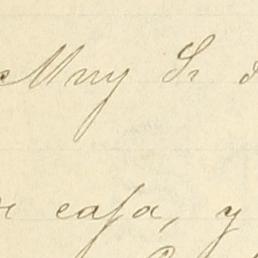 Muy Sr
casa, y